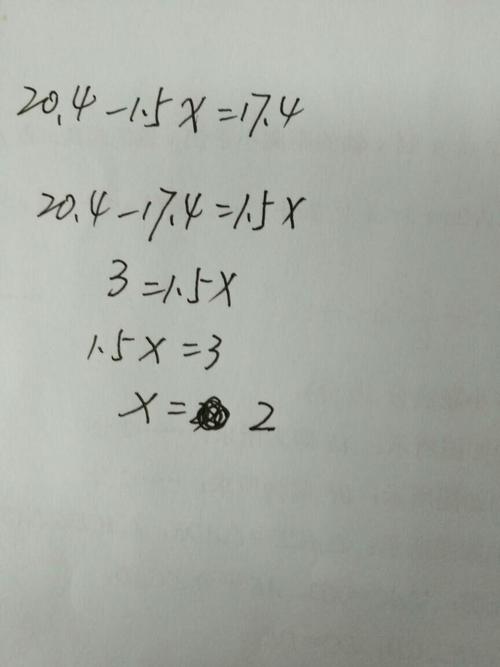 20.4-1.5x=17.4
20.4-17.4=1.5x
3=1.5x
1.5x=3
x= 2